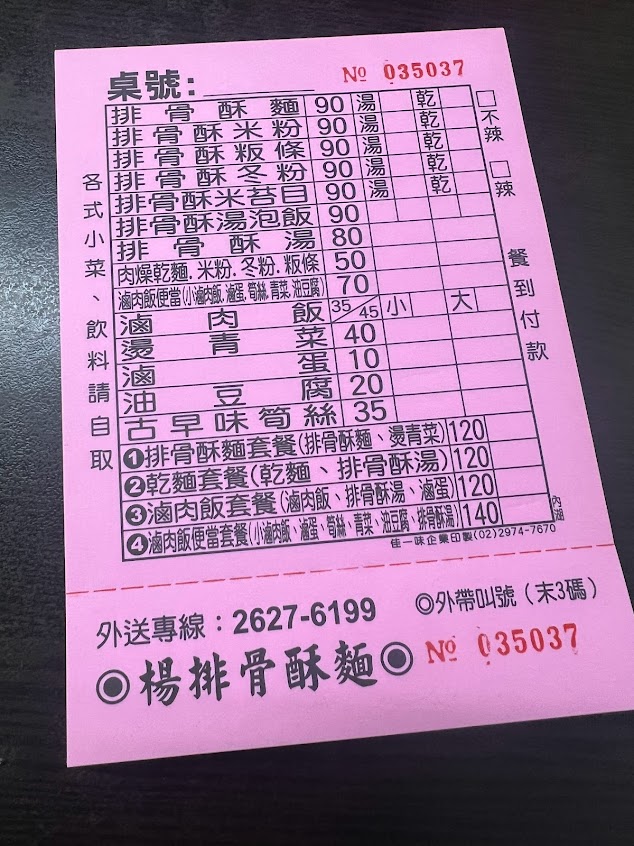 桌號: № 035037
排骨酥麵 90 湯 乾
排骨酥米粉 90 湯 乾
排骨酥粄條 90 湯 乾
排骨酥冬粉 90 湯 乾
排骨酥米苔目 90 湯 乾
排骨酥湯泡飯 90
排骨酥湯 80
肉燥乾麵.米粉.冬粉.粄條 50
滷肉飯便當(小滷肉飯,滷蛋,筍絲,青菜,油豆腐) 70
滷肉飯 35/45 小 大
燙青菜 40
滷蛋 10
油豆腐 20
古早味筍絲 35
❶排骨酥麵套餐(排骨酥麵、燙青菜) 120
❷乾麵套餐(乾麵、排骨酥湯) 120
❸滷肉飯套餐(滷肉飯、排骨酥湯、滷蛋) 120
❹滷肉飯便當套餐(小滷肉飯、滷蛋、筍絲、青菜、油豆腐、排骨酥湯) 140
各式小菜、飲料請自取
□不辣
□辣
餐到付款
內湖
佳一味企業印製(02)2974-7670
外送專線：2627-6199
◎外帶叫號（末3碼）
◉楊排骨酥麵◉
№ 035037